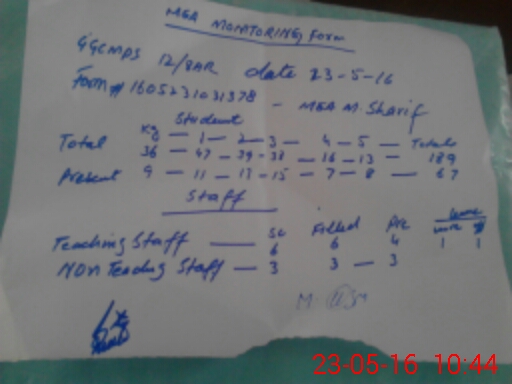 MEA MONITORING Form
GGCMPS 12/8AR date 23-5-16
Form # 1605231031378 - MEA M. Sharif
Student
Kg - 1 - 2 - 3 - 4 - 5 - Totals
Total 36 - 47 - 39 - 38 - 16 - 13 - 189
Present 9 - 11 - 17 - 15 - 7 - 8 - 67
Staff
Sc Filled Pre leave
Teaching Staff — 6 6 4 1 1
NON Teaching Staff — 3 3 - 3
23-05-16 10:44